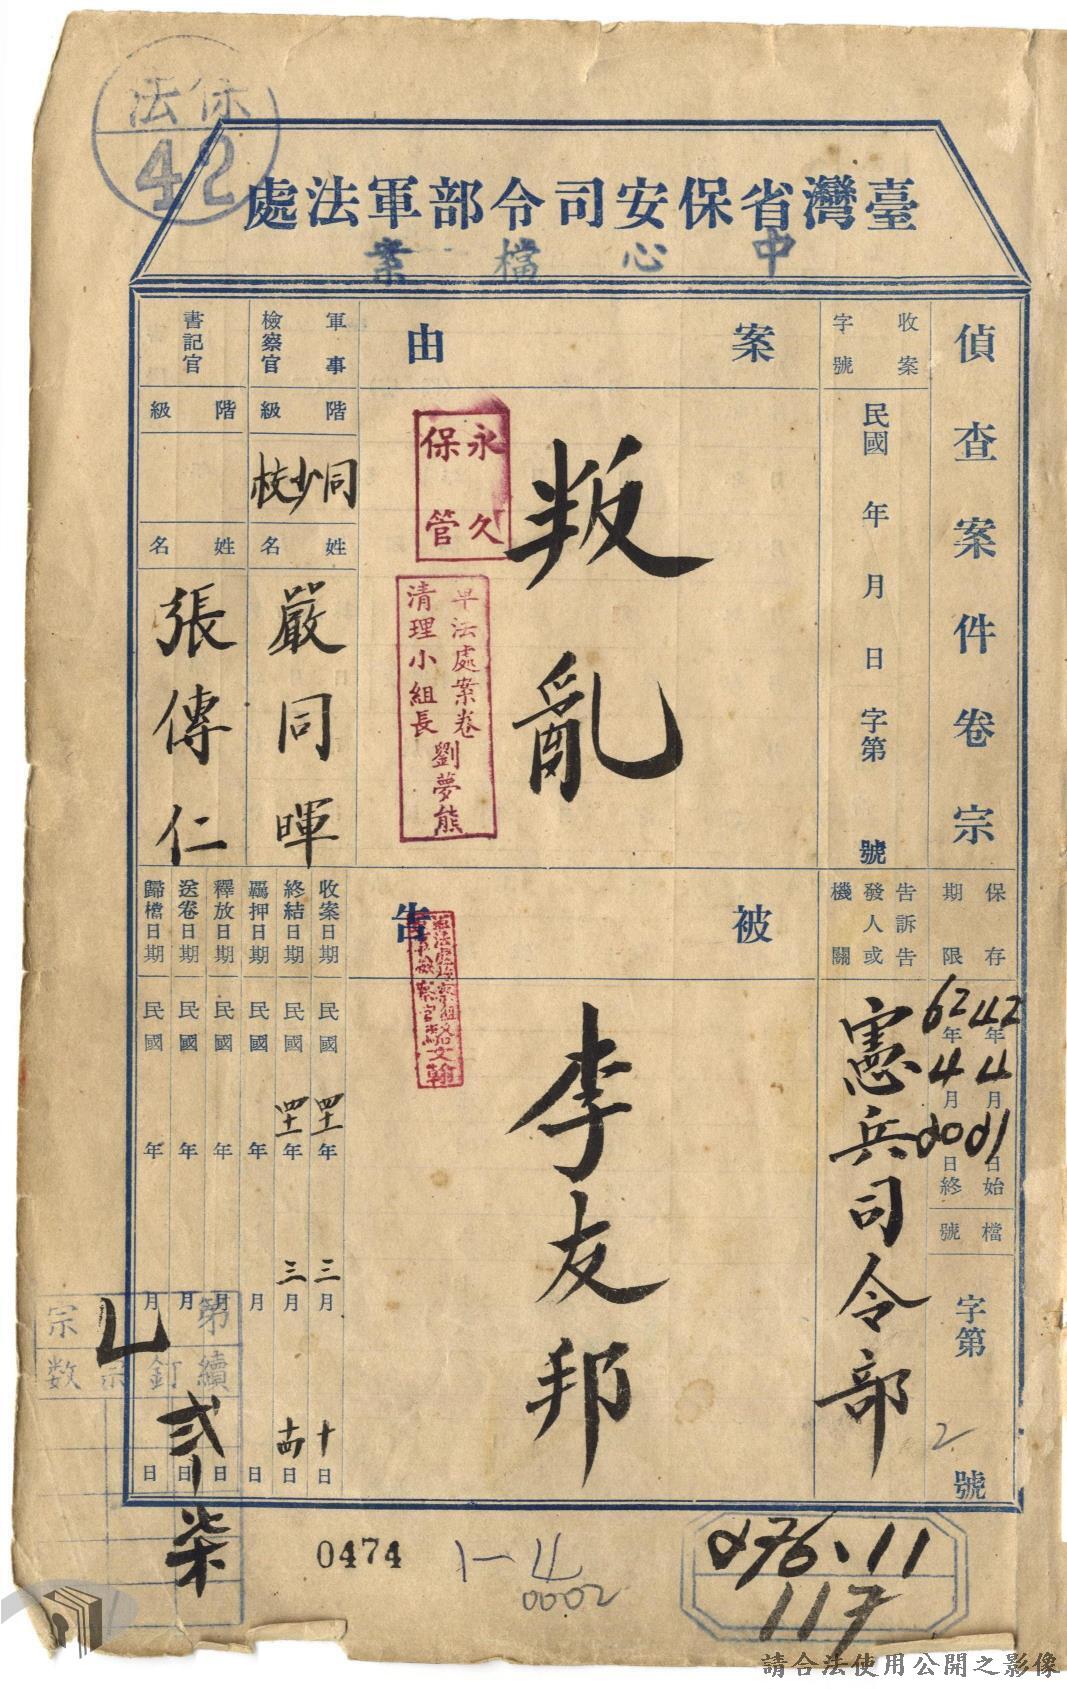 保法
42
臺灣省保安司令部軍法處
中心檔案
偵查案件卷宗
收案字號
民國 年 月 日 字第 號
案由
叛亂
永久保管
軍法處案卷清理小組長劉夢熊
軍事檢察官
階級
同少校
姓名
嚴同暉
書記官
階級
姓名
張傳仁
保存期限
42年4月21日始
62年4月20日終
檔號
字第 2 號
告訴告發人或機關
憲兵司令部
被告
李友邦
駱文翰
收案日期 民國四十一年三月十日
終結日期 民國四十一年三月十四日
羈押日期 民國 年 月 日
釋放日期 民國 年 月 日
送卷日期 民國 年 月 日
歸檔日期 民國 年 月 日
第 宗
續訂宗数
弐
柒
0474
1-11
0002
276.11
117
請合法使用公開之影像